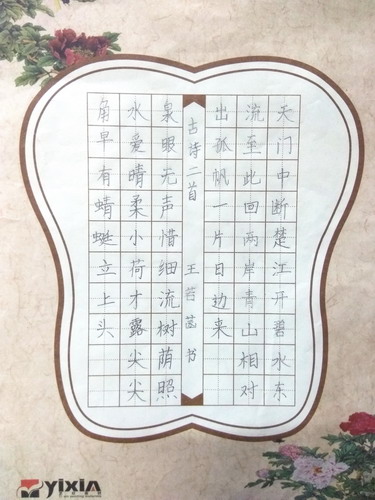 天门中断楚江开碧水东
流至此回两岸青山相对
出孤帆一片日边来
古诗二首 王若菡书
泉眼无声惜细流树荫照
水爱晴柔小荷才露尖尖
角早有蜻蜓立上头
yixin